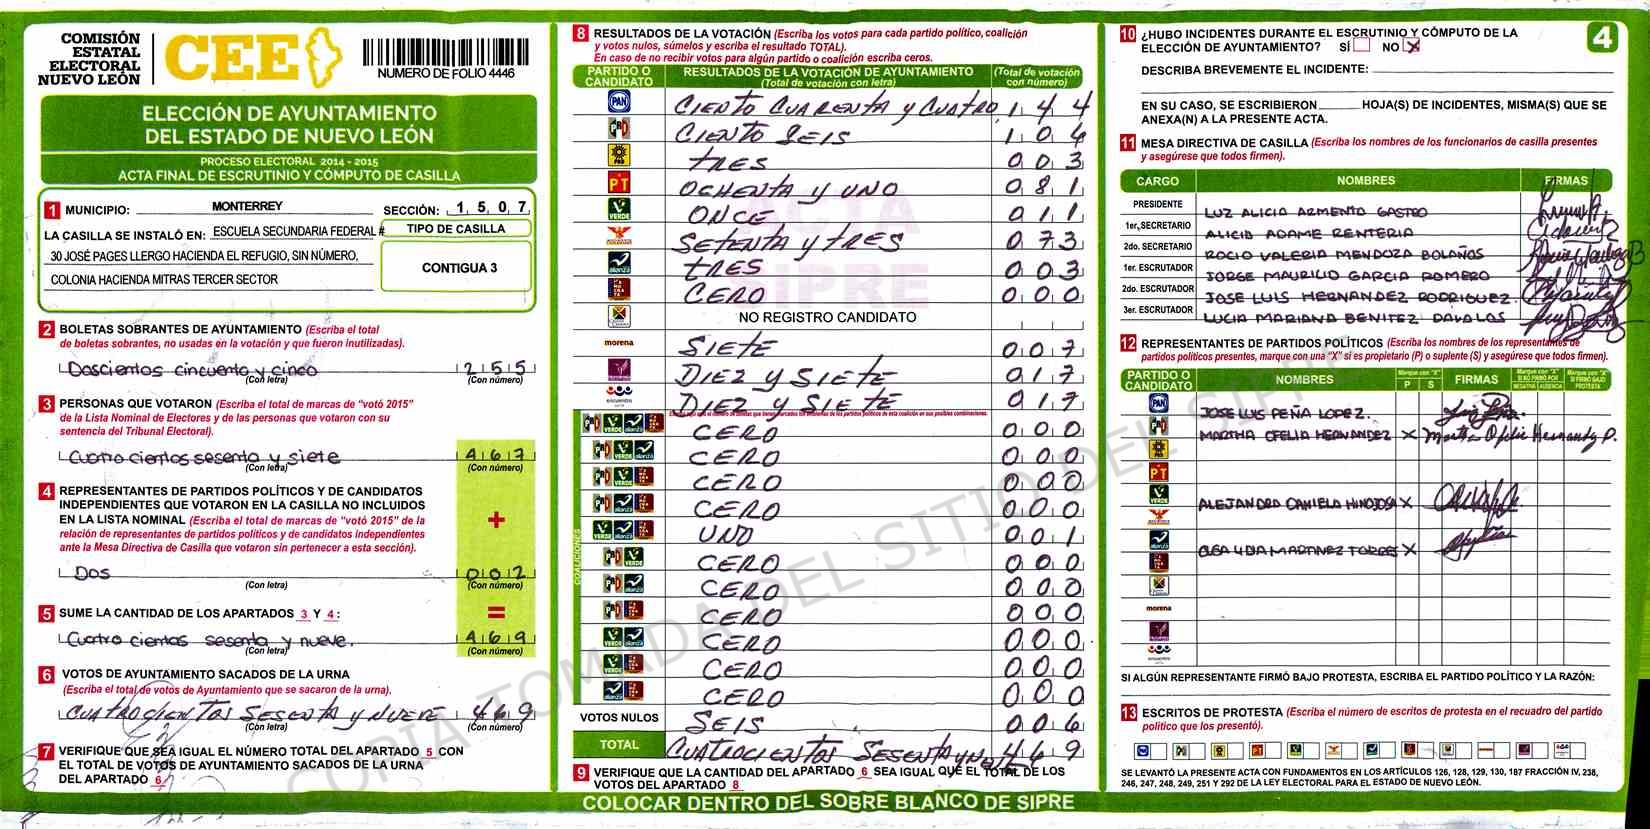 COMISIÓN
ESTATAL
ELECTORAL
NUEVO LEÓN
CEE
NUMERO DE FOLIO 4446
ELECCIÓN DE AYUNTAMIENTO
DEL ESTADO DE NUEVO LEÓN
PROCESO ELECTORAL 2014 - 2015
ACTA FINAL DE ESCRUTINIO Y CÓMPUTO DE CASILLA
1 MUNICIPIO: MONTERREY SECCIÓN: 1 5 0 7
LA CASILLA SE INSTALÓ EN: ESCUELA SECUNDARIA FEDERAL #
30 JOSÉ PAGES LLERGO HACIENDA EL REFUGIO, SIN NÚMERO,
COLONIA HACIENDA MITRAS TERCER SECTOR
TIPO DE CASILLA
CONTIGUA 3
2 BOLETAS SOBRANTES DE AYUNTAMIENTO (Escriba el total
de boletas sobrantes, no usadas en la votación y que fueron inutilizadas).
Doscientos cincuenta y cinco 2 5 5
(Con letra) (Con número)
3 PERSONAS QUE VOTARON (Escriba el total de marcas de "votó 2015"
de la Lista Nominal de Electores y de las personas que votaron con su
sentencia del Tribunal Electoral).
Cuatro cientos sesenta y siete 4 6 7
(Con letra) (Con número)
4 REPRESENTANTES DE PARTIDOS POLÍTICOS Y DE CANDIDATOS
INDEPENDIENTES QUE VOTARON EN LA CASILLA NO INCLUIDOS
EN LA LISTA NOMINAL (Escriba el total de marcas de "votó 2015" de la
relación de representantes de partidos políticos y de candidatos independientes
ante la Mesa Directiva de Casilla que votaron sin pertenecer a esta sección).
+
Dos 0 0 2
(Con letra) (Con número)
5 SUME LA CANTIDAD DE LOS APARTADOS 3 Y 4: =
Cuatro cientos sesenta y nueve. 4 6 9
(Con letra) (Con número)
6 VOTOS DE AYUNTAMIENTO SACADOS DE LA URNA
(Escriba el total de votos de Ayuntamiento que se sacaron de la urna).
CUATROCIENTOS SESENTA Y NUEVE 4 6 9
(Con letra) (Con número)
7 VERIFIQUE QUE SEA IGUAL EL NÚMERO TOTAL DEL APARTADO 5 CON
EL TOTAL DE VOTOS DE AYUNTAMIENTO SACADOS DE LA URNA
DEL APARTADO 6
8 RESULTADOS DE LA VOTACIÓN (Escriba los votos para cada partido político, coalición
y votos nulos, súmelos y escriba el resultado TOTAL).
En caso de no recibir votos para algún partido o coalición escriba ceros.
PARTIDO O CANDIDATO RESULTADOS DE LA VOTACIÓN DE AYUNTAMIENTO (Total de votación con letra) (Total de votación con número)
PAN CIENTO CUARENTA Y CUATRO 1 4 4
PRI CIENTO SEIS 1 0 6
PRD TRES 0 0 3
PT OCHENTA Y UNO 0 8 1
VERDE ONCE 0 1 1
SETENTA Y TRES 0 7 3
alianza TRES 0 0 3
CERO 0 0 0
NO REGISTRO CANDIDATO
morena SIETE 0 0 7
DIEZ Y SIETE 0 1 7
encuentro DIEZ Y SIETE 0 1 7
COALICIONES
CERO 0 0 0
CERO 0 0 0
CERO 0 0 0
CERO 0 0 0
UNO 0 0 1
CERO 0 0 0
CERO 0 0 0
CERO 0 0 0
CERO 0 0 0
CERO 0 0 0
CERO 0 0 0
VOTOS NULOS SEIS 0 0 6
TOTAL CUATROCIENTOS SESENTA Y NUEVE 4 6 9
9 VERIFIQUE QUE LA CANTIDAD DEL APARTADO 6 SEA IGUAL QUE EL TOTAL DE LOS
VOTOS DEL APARTADO 8
COLOCAR DENTRO DEL SOBRE BLANCO DE SIPRE
ACTA
SIPRE
COPIA TOMADA DEL SITIO DEL SIPRE
4
10 ¿HUBO INCIDENTES DURANTE EL ESCRUTINIO Y CÓMPUTO DE LA
ELECCIÓN DE AYUNTAMIENTO? SÍ NO X
DESCRIBA BREVEMENTE EL INCIDENTE:
EN SU CASO, SE ESCRIBIERON HOJA(S) DE INCIDENTES, MISMA(S) QUE SE
ANEXA(N) A LA PRESENTE ACTA.
11 MESA DIRECTIVA DE CASILLA (Escriba los nombres de los funcionarios de casilla presentes
y asegúrese que todos firmen).
CARGO NOMBRES FIRMAS
PRESIDENTE LUZ ALICIA ARMENTO CASTRO
1er. SECRETARIO ALICIA ADAME RENTERIA
2do. SECRETARIO ROCIO VALERIA MENDOZA BOLAÑOS
1er. ESCRUTADOR JORGE MAURILIO GARCIA ROMERO
2do. ESCRUTADOR JOSE LUIS HERNANDEZ RODRIGUEZ.
3er. ESCRUTADOR LUCIA MARIANA BENITEZ DAVALOS
12 REPRESENTANTES DE PARTIDOS POLÍTICOS (Escriba los nombres de los representantes de
partidos políticos presentes, marque con una "X" si es propietario (P) o suplente (S) y asegúrese que todos firmen).
PARTIDO O CANDIDATO NOMBRES Marque con "X" P S FIRMAS Marque con "X" SI NO FIRMÓ POR NEGATIVA AUSENCIA Marque con "X" SI FIRMÓ BAJO PROTESTA
PAN JOSE LUIS PEÑA LOPEZ.
PRI MARTHA OFELIA HERNANDEZ X Martha Ofelia Hernandez P.
PRD
PT
VERDE ALEJANDRA DANIELA HINOJOSA X
alianza OLGA LIDIA MARTINEZ TORRES X
morena
SI ALGÚN REPRESENTANTE FIRMÓ BAJO PROTESTA, ESCRIBA EL PARTIDO POLÍTICO Y LA RAZÓN:
13 ESCRITOS DE PROTESTA (Escriba el número de escritos de protesta en el recuadro del partido
político que los presentó).
SE LEVANTÓ LA PRESENTE ACTA CON FUNDAMENTOS EN LOS ARTÍCULOS 126, 128, 129, 130, 187 FRACCIÓN IV, 238,
246, 247, 248, 249, 251 Y 292 DE LA LEY ELECTORAL PARA EL ESTADO DE NUEVO LEÓN.